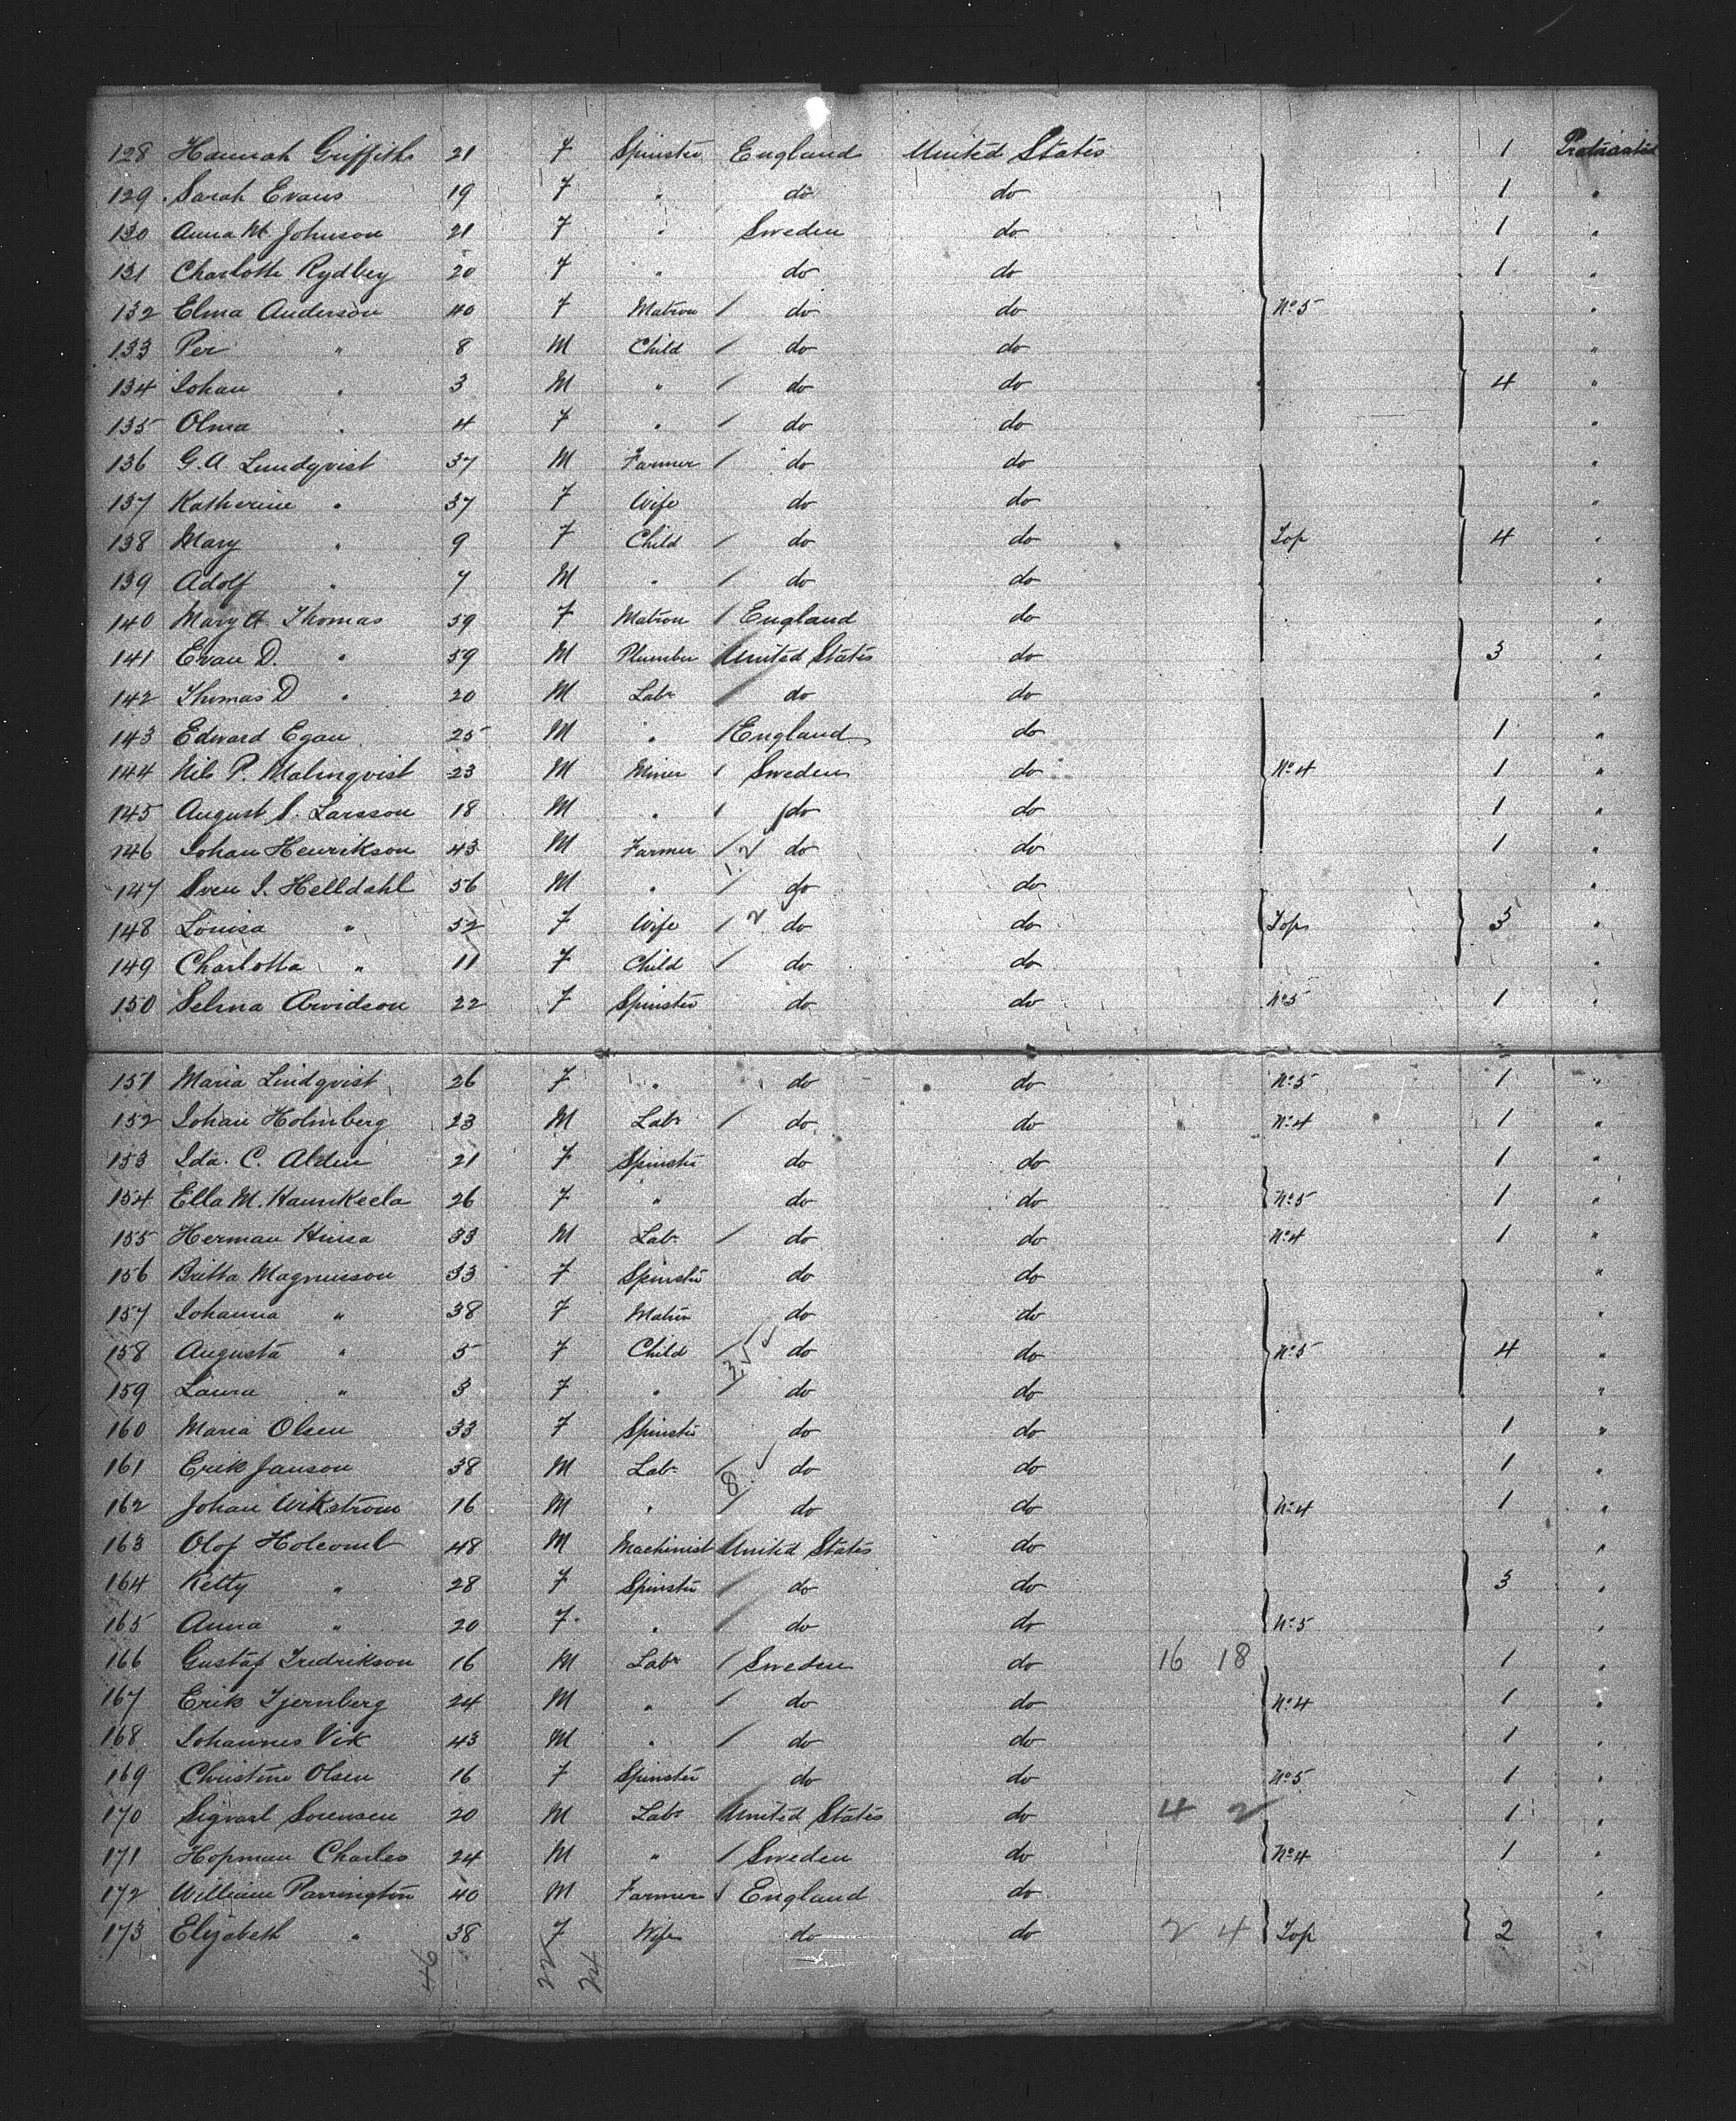 128 Hannah Griffiths 21 F Spinster England United States 1 Protracted
129 Sarah Evans 19 F " do do 1 "
130 Anna M. Johnson 21 F " Sweden do 1 "
131 Charlotte Rydbey 20 F " do do 1 "
132 Elma Anderson 40 F Matron / do do No 5 "
133 Per " 8 M Child / do do "
134 Johan " 3 M " / do do 4 "
135 Olma " 4 F " / do do "
136 G. A. Lundqvist 37 M Farmer / do do "
137 Katherine " 37 F Wife do do "
138 Mary " 9 F Child / do do Top 4 "
139 Adolf " 7 M " / do do "
140 Mary A Thomas 59 F Matron / England do "
141 Evan D. " 59 M Plumber / United States do 3 "
142 Thomas D " 20 M Labr / do do "
143 Edward Egan 25 M " / England do 1 "
144 Nils P. Malmqvist 23 M Miner / Sweden do No 4 1 "
145 August S. Larsson 18 M " / do do 1 "
146 Johan Henrikson 43 M Farmer / 12 do do 1 "
147 Sven J. Helldahl 56 M " / do do "
148 Louisa " 52 F Wife / 2 do do Top 3 "
149 Charlotta " 11 F Child / do do "
150 Selma Arvidson 22 F Spinster do do No 5 1 "
151 Maria Lindqvist 26 F " do do No 5 1 "
152 Johan Holmberg 23 M Labr / do do No 4 1 "
153 Ida. C. Alden 21 F Spinster do do 1 "
154 Ella M. 26 F " do do No 5 1 "
155 Herman 33 M Labr / do do No 4 1 "
156 Britta Magnusson 33 F Spinster do do "
157 Johanna " 38 F Matron do do "
158 Augusta " 5 F Child / do do No 5 4 "
159 Laura " 3 F " / do do "
160 Maria Olsen 33 F Spinster do do 1 "
161 Erik Janson 38 M Labr / do do 1 "
162 Johan Wikstrom 16 M " 8 / do do No 4 1 "
163 Olof Holcomb 48 M Machinist / United States do "
164 Ketty " 28 F Spinster / do do 3 "
165 Anna " 20 F " / do do No 5 "
166 Gustaf Fredrikson 16 M Labr / Sweden do 16 18 1 "
167 Erik Tjernberg 24 M " / do do No 4 1 "
168 Johannes Vik 43 M " / do do 1 "
169 Christine Olsen 16 F Spinster do do No 5 1 "
170 Sigvard Sorensen 20 M Labr / United States do 4 2 1 "
171 Hopman Charles 24 M " / Sweden do No 4 1 "
172 William Parrington 40 M Farmer / England do "
173 Elizabeth " 38 F Wife do do 2 4 Top 2 "
46 22 24